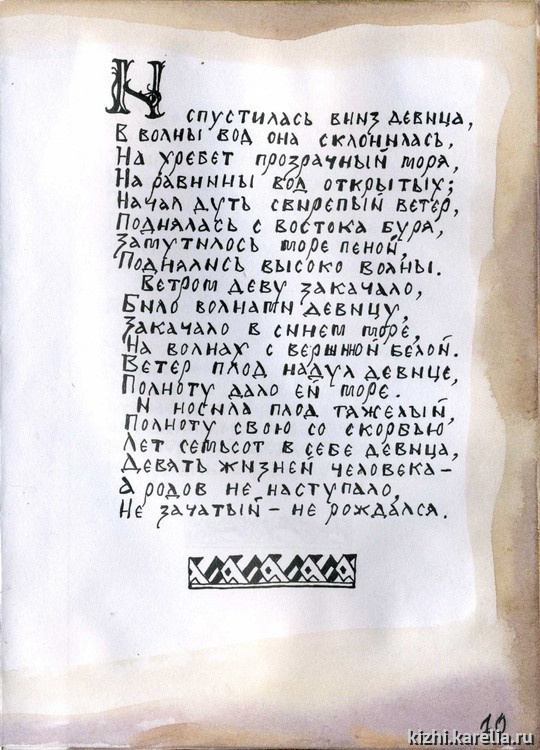 И спустилась вниз девица,
В волны вод она склонилась,
На хребет прозрачный моря,
На равнины вод открытых;
Начал дуть свирепый ветер,
Поднялась с востока буря,
Замутилось море пеной,
Поднялись высоко волны.
Ветром деву закачало,
Било волнами девицу,
Закачало в синем море,
На волнах с вершиной белой.
Ветер плод надул девице,
Полноту дало ей море.
И носила плод тяжелый,
Полноту свою со скорбью
Лет семьсот в себе девица,
Девять жизней человека –
А родов не наступало,
Не зачатый – не рождался.
10
kizhi.karelia.ru